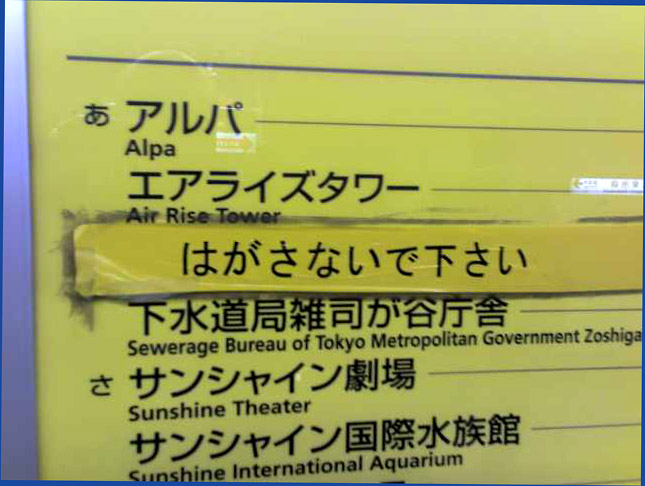 あ アルパ
Alpa
エアライズタワー
Air Rise Tower
はがさないで下さい
下水道局雑司が谷庁舎
Sewerage Bureau of Tokyo Metropolitan Government Zoshiga
さ サンシャイン劇場
Sunshine Theater
サンシャイン国際水族館
Sunshine International Aquarium